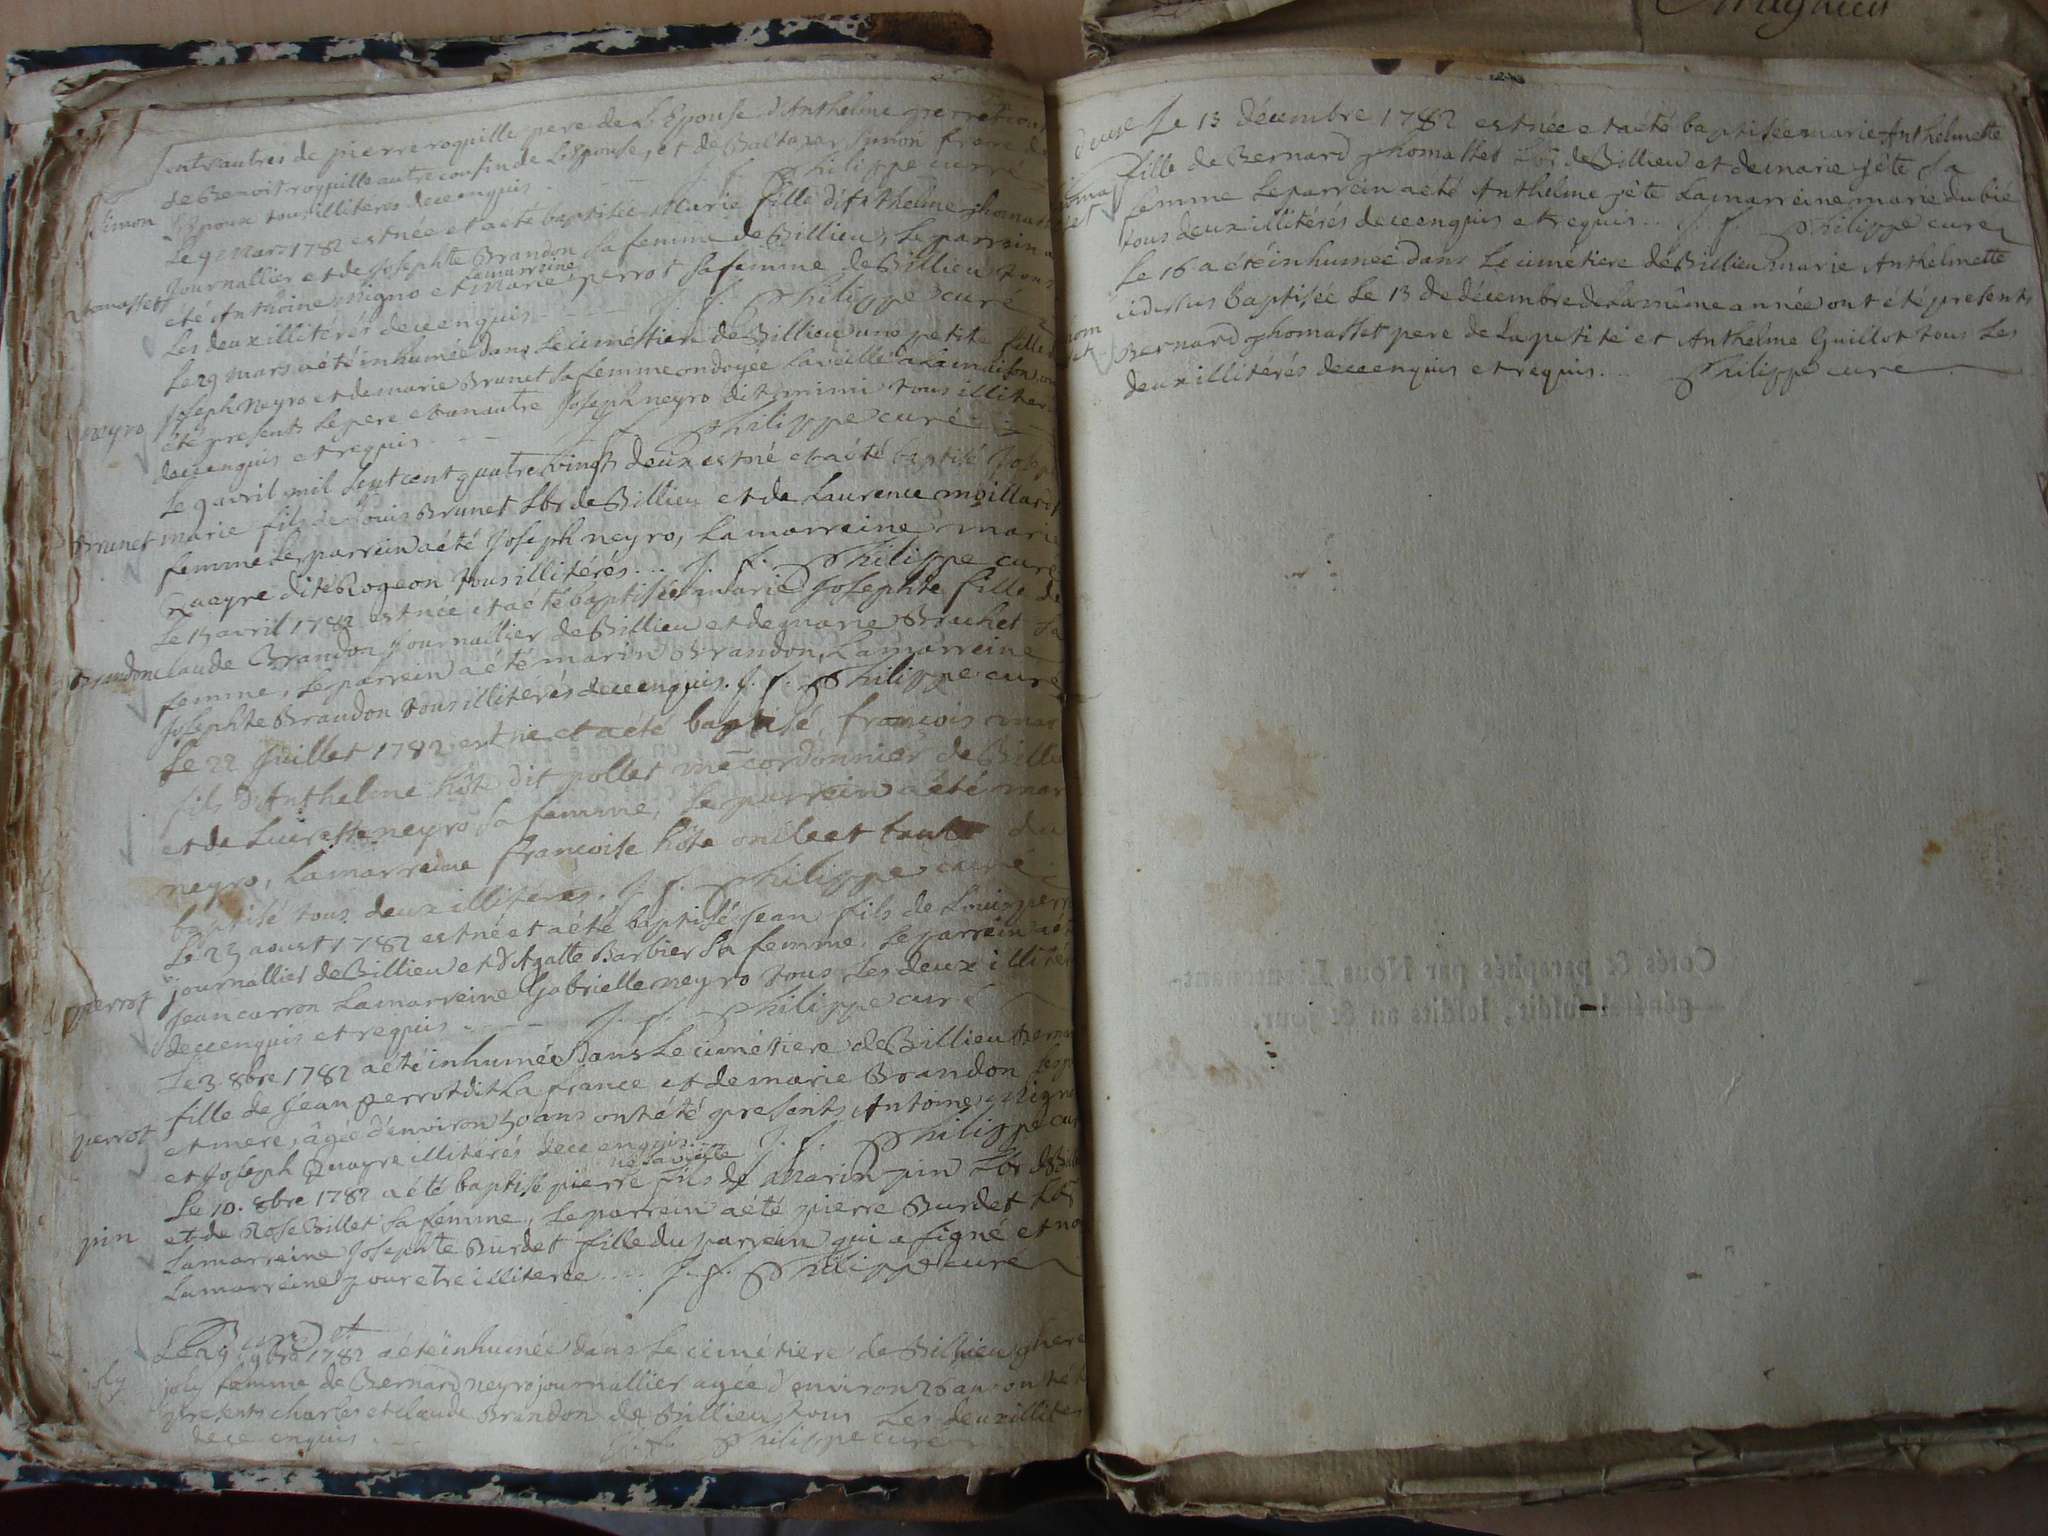 entr'autres de pierre roquille pere de L'Epouse d'Anthelme perret cou
de Benoit roquille autre cousin de L'Epouse, et de Baltazar Simon frere de
Simon L'Epoux tous illiteres de ce enquis. J. f. Philippe curé
Le 9 Mars 1782 est née et a été baptisée Marie fille d'Anthelme thomas
Journallier et de Josephte Brandon sa femme de Billieu, Le parrein a
thomasset été Anthoine et Marie La marreine perrot sa femme de Billieu tous
Les deux illitérés de ce enquis J. f. Philippe curé
Le 29 mars a été inhumée dans Le cimétiere de Billieu une petite fille
Joseph neyro et de marie Brunet sa femme ondoyée La veille a La maison on
neyro été presents Le pere et un autre Joseph neyro dit mimi tous illiteré
de ce enquis et requis J. f. Philippe curé
Le 9 avril mil sept cent quatre vingts deux est né et a été baptisé Joseph
Brunet marie fils de Louis Brunet Lbr de Billieu et de Laurence moillard
femme Le parrein a été Joseph neyro, La marreine marie
Quayre dite Rogeon tous illitérés... J. f. Philippe curé
Le 15 avril 1782 est née et a été baptisée marie Josephte fille de
Brandon claude Brandon Journallier de Billieu et de marie Bruhet sa
femme, Le parrein a été marin Brandon, La marreine
Josephte Brandon tous illitérés de ce enquis. J. f. Philippe curé
Le 22 Juillet 1782 est né et a été baptisé françois mar
fils d'Anthelme hôte dit pollet me cordonnier de Billieu
et de Lucresse neyro sa femme, Le parrein a été mar
neyro, La marreine francoise hôte oncle et tante du
baptisé tous deux illiteres. J. f. Philippe curé
Le 23 aoust 1782 est né et a été baptisé Jean fils de Louis perr
journallier de Billieu et d'Agatte Barbier sa femme. Le parrein a ét
perrot Jean carron La marreine Gabrielle neyro tous Les deux illitér
de ce enquis et requis J. f. Philippe curé
Le 3. 8bre 1782 a été inhumée dans Le cimétiere de Billieu
fille de Jean perrot dit La france et de marie Brandon ses p
perrot et mere, âgée d'environ 50 ans ont été presents Antoine
et Joseph Quayre illitérés de ce enquis J. f. Philippe cur
né la veille
Le 10. 8bre 1782 a été baptisé pierre fils de Marin pin Lbr de Bill
et de Rose Billet sa femme, Le parrein a été pierre Burdet Lbr
pin La marreine Josephte Burdet fille du parrein qui a signé et no
La marreine pour etre illiterée.... J. f. Philippe curé
Le 29 9bre 1782 a été inhumée dans Le cimétiere de Billieu there
joly joly femme de Bernard neyro journallier agée d'environ 26 ans ont ét
presents charles et claude Brandon de Billieu tous Les deux illités
de ce enquis J. f. Philippe curé
Le 13 décembre 1782 est née et a été baptisée marie Anthelmette
fille de Bernard thomasset Lbr de Billieu et de marie jête sa
femme Le parrein a été Anthelme jête La marreine marie dubié
tous deux illitérés de ce enquis et requis.. J. f. Philippe curé
Le 16 a été inhumée dans Le cimetiere de Billieu marie Anthelmette
ci dessus baptisée Le 13 de décembre de La même année ont été presents
Bernard thomasset pere de La petite et Anthelme Guillot tous Les
deux illitérés de ce enquis et requis... Philippe curé
Cotés & paraphés par Nous Lieutenant-
général susdit, lesdits an & jour.